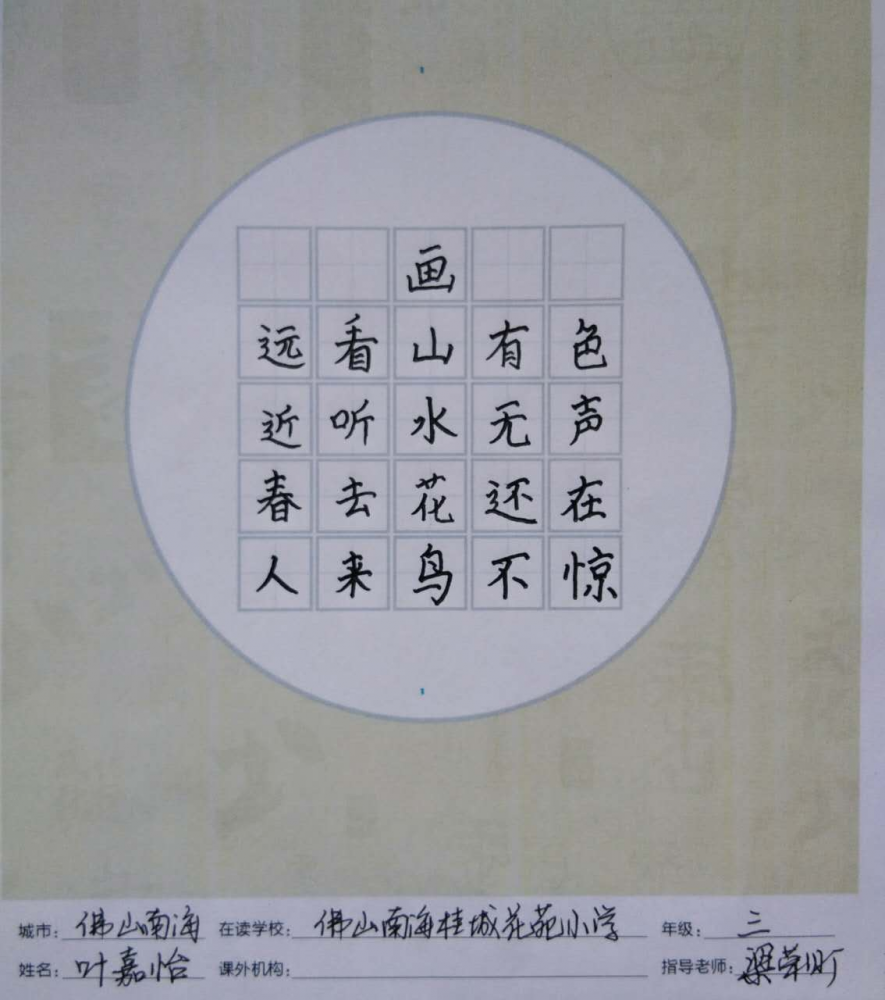 画
远看山有色
近听水无声
春去花还在
人来鸟不惊
城市：佛山南海 在读学校：佛山南海桂城花苑小学 年级：三
姓名：叶嘉怡 课外机构： 指导老师：梁